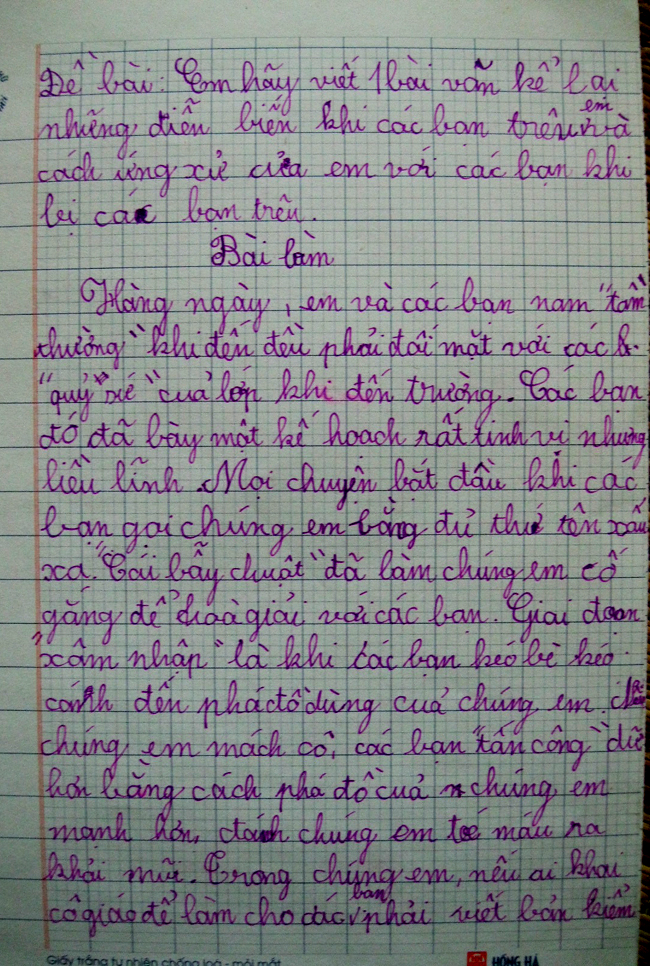 Đề bài: Em hãy viết 1 bài văn kể lại
những diễn biến khi các bạn trêu em và
cách ứng xử của em với các bạn khi
bị các bạn trêu.
Bài làm
Hàng ngày, em và các bạn nam "tầm
thường" khi đến đều phải đối mặt với các
"quỷ xứ" của lớp khi đến trường. Các bạn
đó đã bày một kế hoạch rất tinh vi nhưng
liều lĩnh. Mọi chuyện bắt đầu khi các
bạn gọi chúng em bằng đủ thứ tên xấu
xa. "Cái bẫy chuột" đã làm chúng em cố
gắng để hoà giải với các bạn. Giai đoạn
"xâm nhập" là khi các bạn kéo bè kéo
cánh đến phá đồ dùng của chúng em.
chúng em mách cô, các bạn "tấn công" dữ
hơn bằng cách phá đồ của chúng em
mạnh hơn, đánh chúng em toé máu ra
khỏi mũi. Trong chúng em, nếu ai khai
cô giáo để làm cho các bạn phải viết bản kiểm
Giấy trắng tự nhiên chống loá - mỏi mắt
HỒNG HÀ